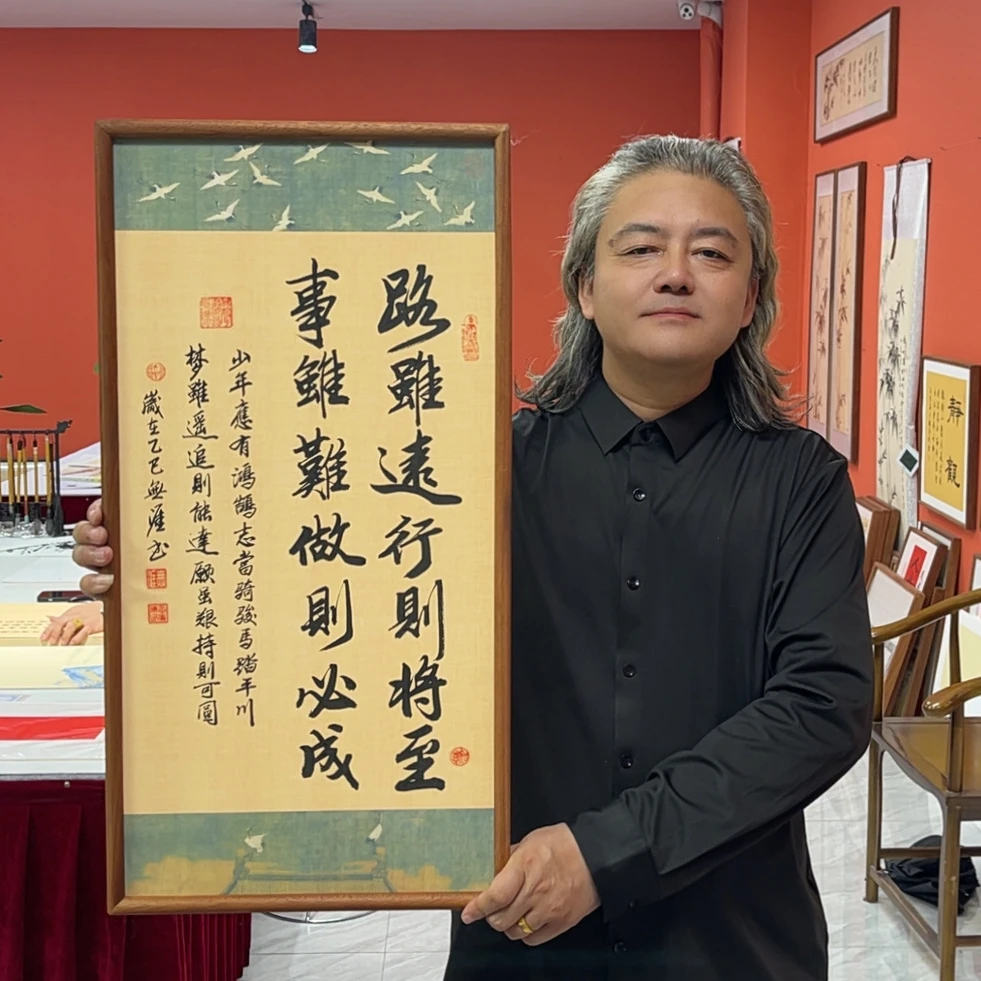 路雖遠行則將至
事雖難做則必成
少年應有鴻鵠志當騎駿馬踏平川
梦雖遥追則能達願虽艰持則可圓
歲在乙巳無涯书
靜觀